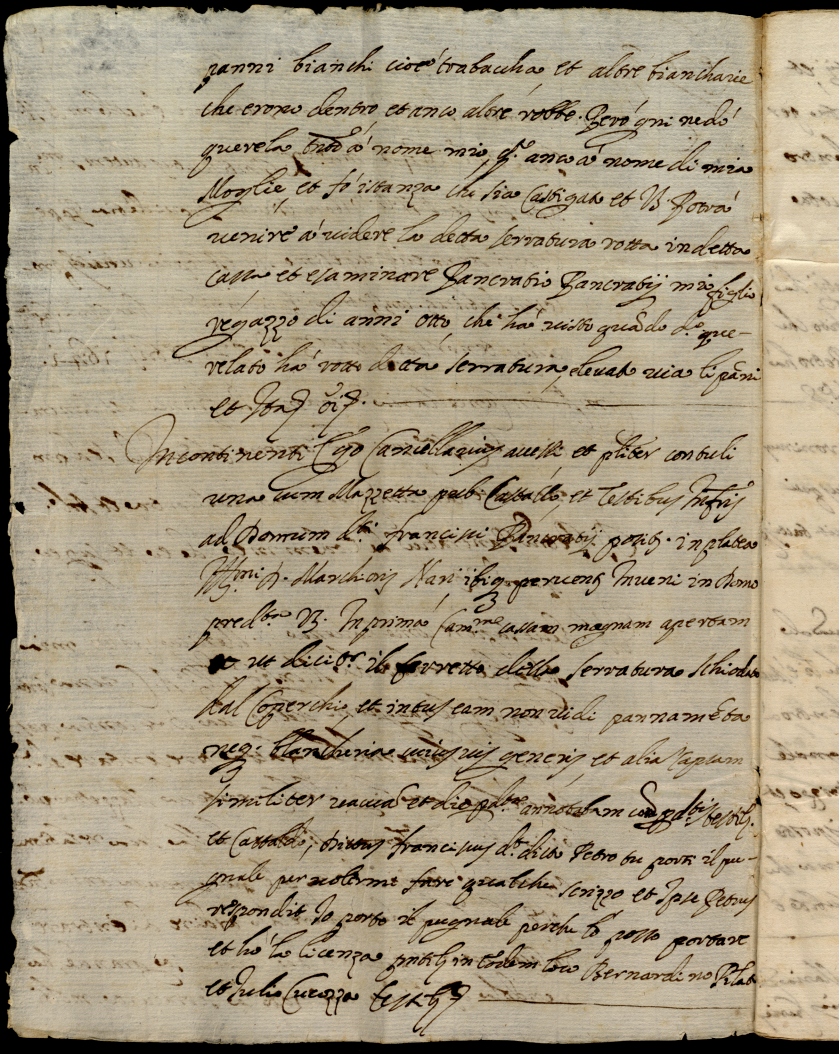 panni bianchi cioè trabaccha et altre biancharie
che erono dentro et anco altre robbe. Però gni ne dò
querela tutto à nome mio, anco à nome di mia
Moglie, et fò istanza che sia Castigato et V.S. Potrà
venire à videre la detta serratura rotta in detta
cassa et esaminare Pancratio Pancratij mio figlio
regazzo di anni otto, che hà visto quãdo d.o que-
relato hà rotto detta serratura, elevato via li pãni
et
Incontinenti Ego Cancellarius accessi et pñliter contuli
una cum Mazzetta pub.o Castaldo, et Testibus Infris
ad Domum d.ti Francisci Pancratij posit. in platea
Ill.mi D. Marchionis Nari ibiq pervent Inveni in Domo
pred.ta V3. In prima Cam.ra cassam magnam apertam
ut dicitur il ferretto della serratura schiodato
dal Coperchio, et intus eam non vidi pannamẽta
neq. blancheria cuiusvis generis, et alia Capsam
similiter et annotabam
et Castaldo, Franciscus d.o dicto Petro tu porti il pu-
gnale per volerme fare qualche scrizzo et Ipse Petrus
respondit Io porto il pugnale perche lo posso portare
et hò la licenza pñtib in eodem loco Bernardino Pilato
et Julio Cucozza Testib